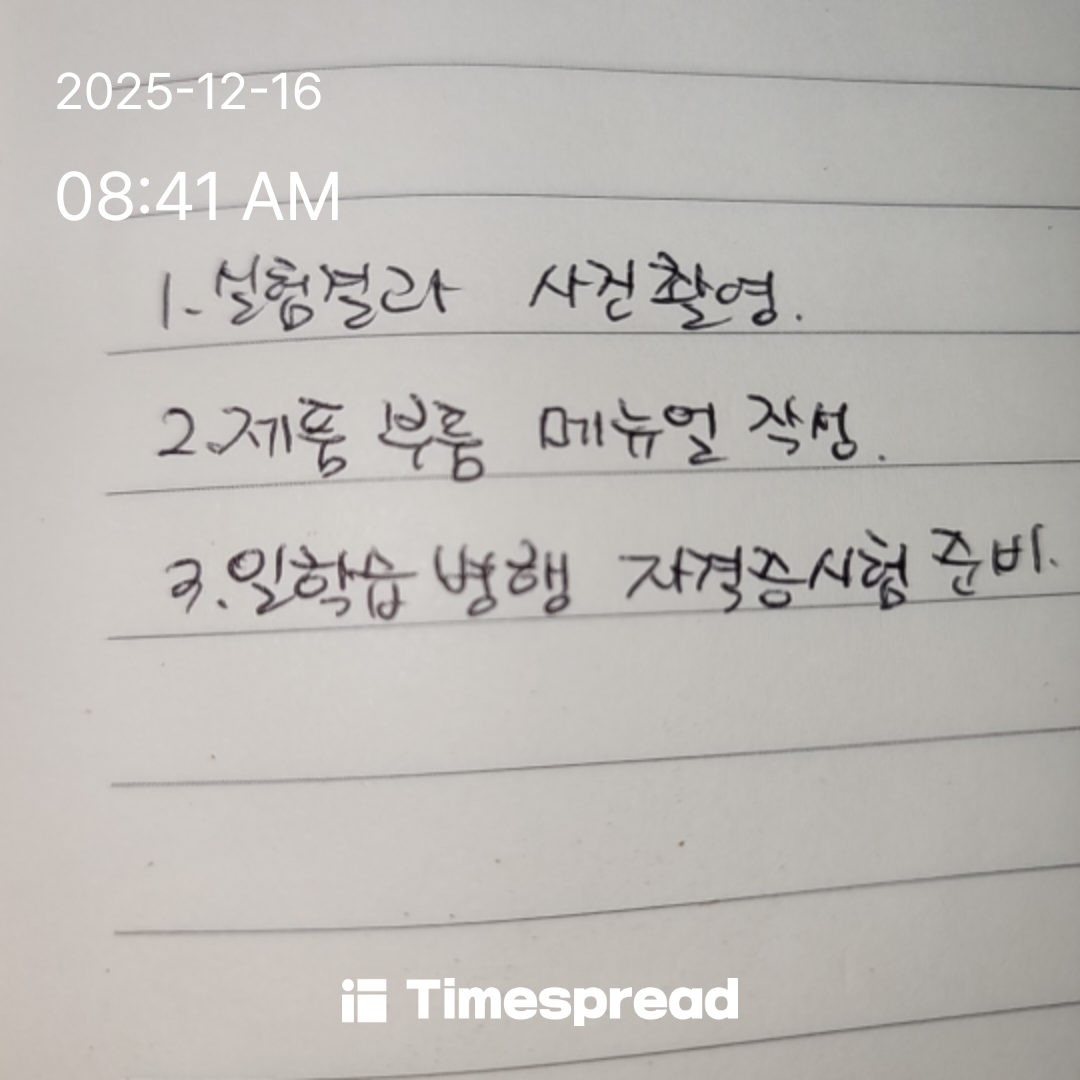 2025-12-16
08:41 AM
1. 실험결과 사진촬영.
2. 제품 부품 메뉴얼 작성.
3. 일학습 병행 자격증시험 준비.
Timespread